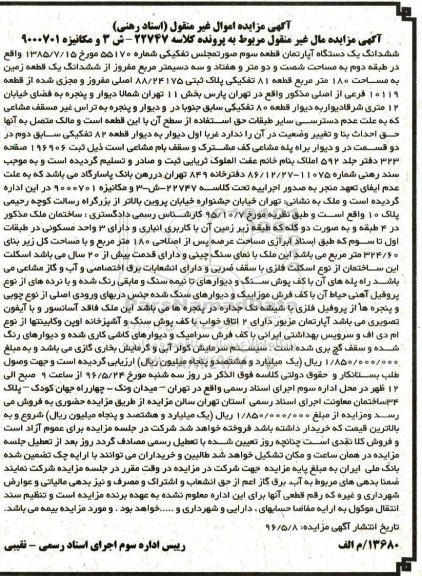 آگهی مزایده اموال غیر منقول (اسناد رهنی)
آگهی مزایده مال غیر منقول مربوط به پرونده کلاسه ۲۲۷۴۷ – ش ۳ و مکانیزه ۹۰۰۰۷۰۱
ششدانگ یک دستگاه آپارتمان قطعه سوم صورتمجلس تفکیکی شماره ۵۵۱۷۰ مورخ ۱۳۸۵/۷/۱۵ واقع
در طبقه دوم به مساحت شصت و دو متر و هفتاد و سه دسیمتر مربع مفروز از ششدانگ یک قطعه زمین
به مساحت ۱۸۰ متر مربع قطعه ۸۱ تفکیکی پلاک ثبتی ۸۸/۲۴۱۷۵ اصلی مفروز و مجزی شده از قطعه
۱۰۱۱۹ فرعی از اصلی مذکور واقع در تهران پارس بخش ۱۱ تهران شمالا دیوار و پنجره به فضای خیابان
۱۲ متری شرقا دیوار به دیوار قطعه ۸۰ تفکیکی سابق جنوبا در و دیوار و پنجره به تراس غیر مسقف مشاعی
که به علت عدم دسترسی سایر طبقات حق استفاده از سطح آن با این قطعه است و مالک متصل به آنها
حق احداث بنا و تغییر وضعیت در آن را ندارد غربا اول دیوار به دیوار قطعه ۸۲ تفکیکی سابق دوم در
دو قسمت در و دیوار به راه پله مشاعی کف مشترک و سقف بام مشاعی است ذیل ثبت ۱۹۶۹۰۶ صفحه
۳۲۳ دفتر جلد ۵۹۲ املاک بنام خانم عفت العلوک ثریایی ثبت و صادر و تسلیم گردیده است و به موجب
سند رهنی شماره ۱۱۰۷۵-۸۶/۱۲/۲۷ دفترخانه ۸۴۹ تهران در رهن بانک پاسارگاد می باشد که به علت
عدم ایفای تعهد منجر به صدور اجراییه تحت کلاسه ۲۲۷۴۷-ش۳ و مکانیزه ۹۰۰۰۷۰۱ در این اداره
گردیده است و ملک به نشانی: تهران خیابان جشنواره خیابان پروین بالاتر از بزرگراه رسالت کوچه رحیمی
پلاک ۱۰ واقع است و طبق نظریه مورخ ۹۵/۱۰/۷ کارشناس رسمی دادگستری: ساختمان ملک مذکور
در ۴ طبقه و به صورت دو کله که طبقه زیر زمین آن با کاربری انباری و دارای ۳ واحد مسکونی در طبقات
اول تا سوم که طبق اسناد ابرازی مساحت عرصه پس از اصلاحی ۱۸۰ متر مربع و با مساحت کل زیر بنای
۳۲۴/۶۰ متر مربع می باشد این ملک با نمای سنگ چینی و دارای قدمت بیش از ۲۰ سال می باشد اسکلت
این ساختمان از نوع اسکلت فلزی با سقف ضربی و دارای انشعابات برق اختصاصی و آب و گاز مشاعی می
باشد راه پله های آن با کف پوش سنگ و دیوارهای تا نیمه سنگ و مابقی رنگ شده و با نرده های از نوع
پروفیل آهنی حیاط آن با کف فرش موزاییک و دیوارهای سنگ شده جنس دربهای ورودی اصلی از نوع چوبی
و پنجره ها از پروفیل فلزی با شیشه تک جداره در پنجره ها می باشد این ملک فاقد آسانسور و با آیفون
تصویری می باشد آپارتمان مزبور دارای ۲ اتاق خواب با کف پوش سنگ و آشپزخانه اوپن و کابینتها از نوع
ام دی اف و سرویس بهداشتی ایرانی با کف فرش سرامیک و دیوارهای کاشی کاری شده و دیوارهای رنگ
شده و سقف گچ بری شده است سیستم سرمایش کولر آبی و گرمایش بخاری گازی می باشد و به مبلغ
۱/۸۵۰/۰۰۰/۰۰۰ ریال (یک میلیارد و هشتصد و پنجاه میلیون ریال) ارزیابی گردیده است و جهت وصول
طلب بستانکار و حقوق دولتی کلاسه فوق الذکر در روز سه شنبه مورخ ۹۶/۵/۲۴ از ساعت ۹ صبح الی
۱۲ ظهر در محل اداره سوم اجرای اسناد رسمی واقع در تهران – میدان ونک – چهارراه جهان کودک – پلاک
۳۴ ساختمان معاونت اجرای اسناد رسمی استان تهران سالن مزایده از طریق مزایده حضوری به فروش می
رسد و مزایده از مبلغ ۱/۸۵۰/۰۰۰/۰۰۰ ریال (یک میلیارد و هشتصد و پنجاه میلیون ریال) شروع و به
بالاترین قیمت که خریدار داشته باشد فروخته خواهد شد شرکت در جلسه مزایده برای عموم آزاد است
و فروش کلا نقدی است چنانچه روز تعیین شده با تعطیل رسمی مصادف گردد روز بعد از تعطیل جلسه
مزایده در همان ساعت و مکان تشکیل خواهد شد طالبین و خریداران می توانند با ارایه چک تضمین شده
بانک ملی ایران به مبلغ پایه مزایده جهت شرکت در مزایده در وقت مقرر در جلسه مزایده شرکت نمایند
ضمنا بدهی های مربوط به آب، برق گاز اعم از حق انشعاب و اشتراک و مصرف و نیز بدهی مالیاتی و عوارض
شهرداری و غیره که رقم قطعی آنها برای این اداره معلوم نشده به عهده برنده مزایده است و تنظیم سند
انتقال موکول به ارایه مفاصا حسابهای ، دارایی و شهرداری و .....خواهد بود . و مورد مزایده بیمه می باشد.
تاریخ انتشار آگهی مزایده: ۹۶/۵/۸
۱۳۶۸۰/م الف
رییس اداره سوم اجرای اسناد رسمی – نقیبی